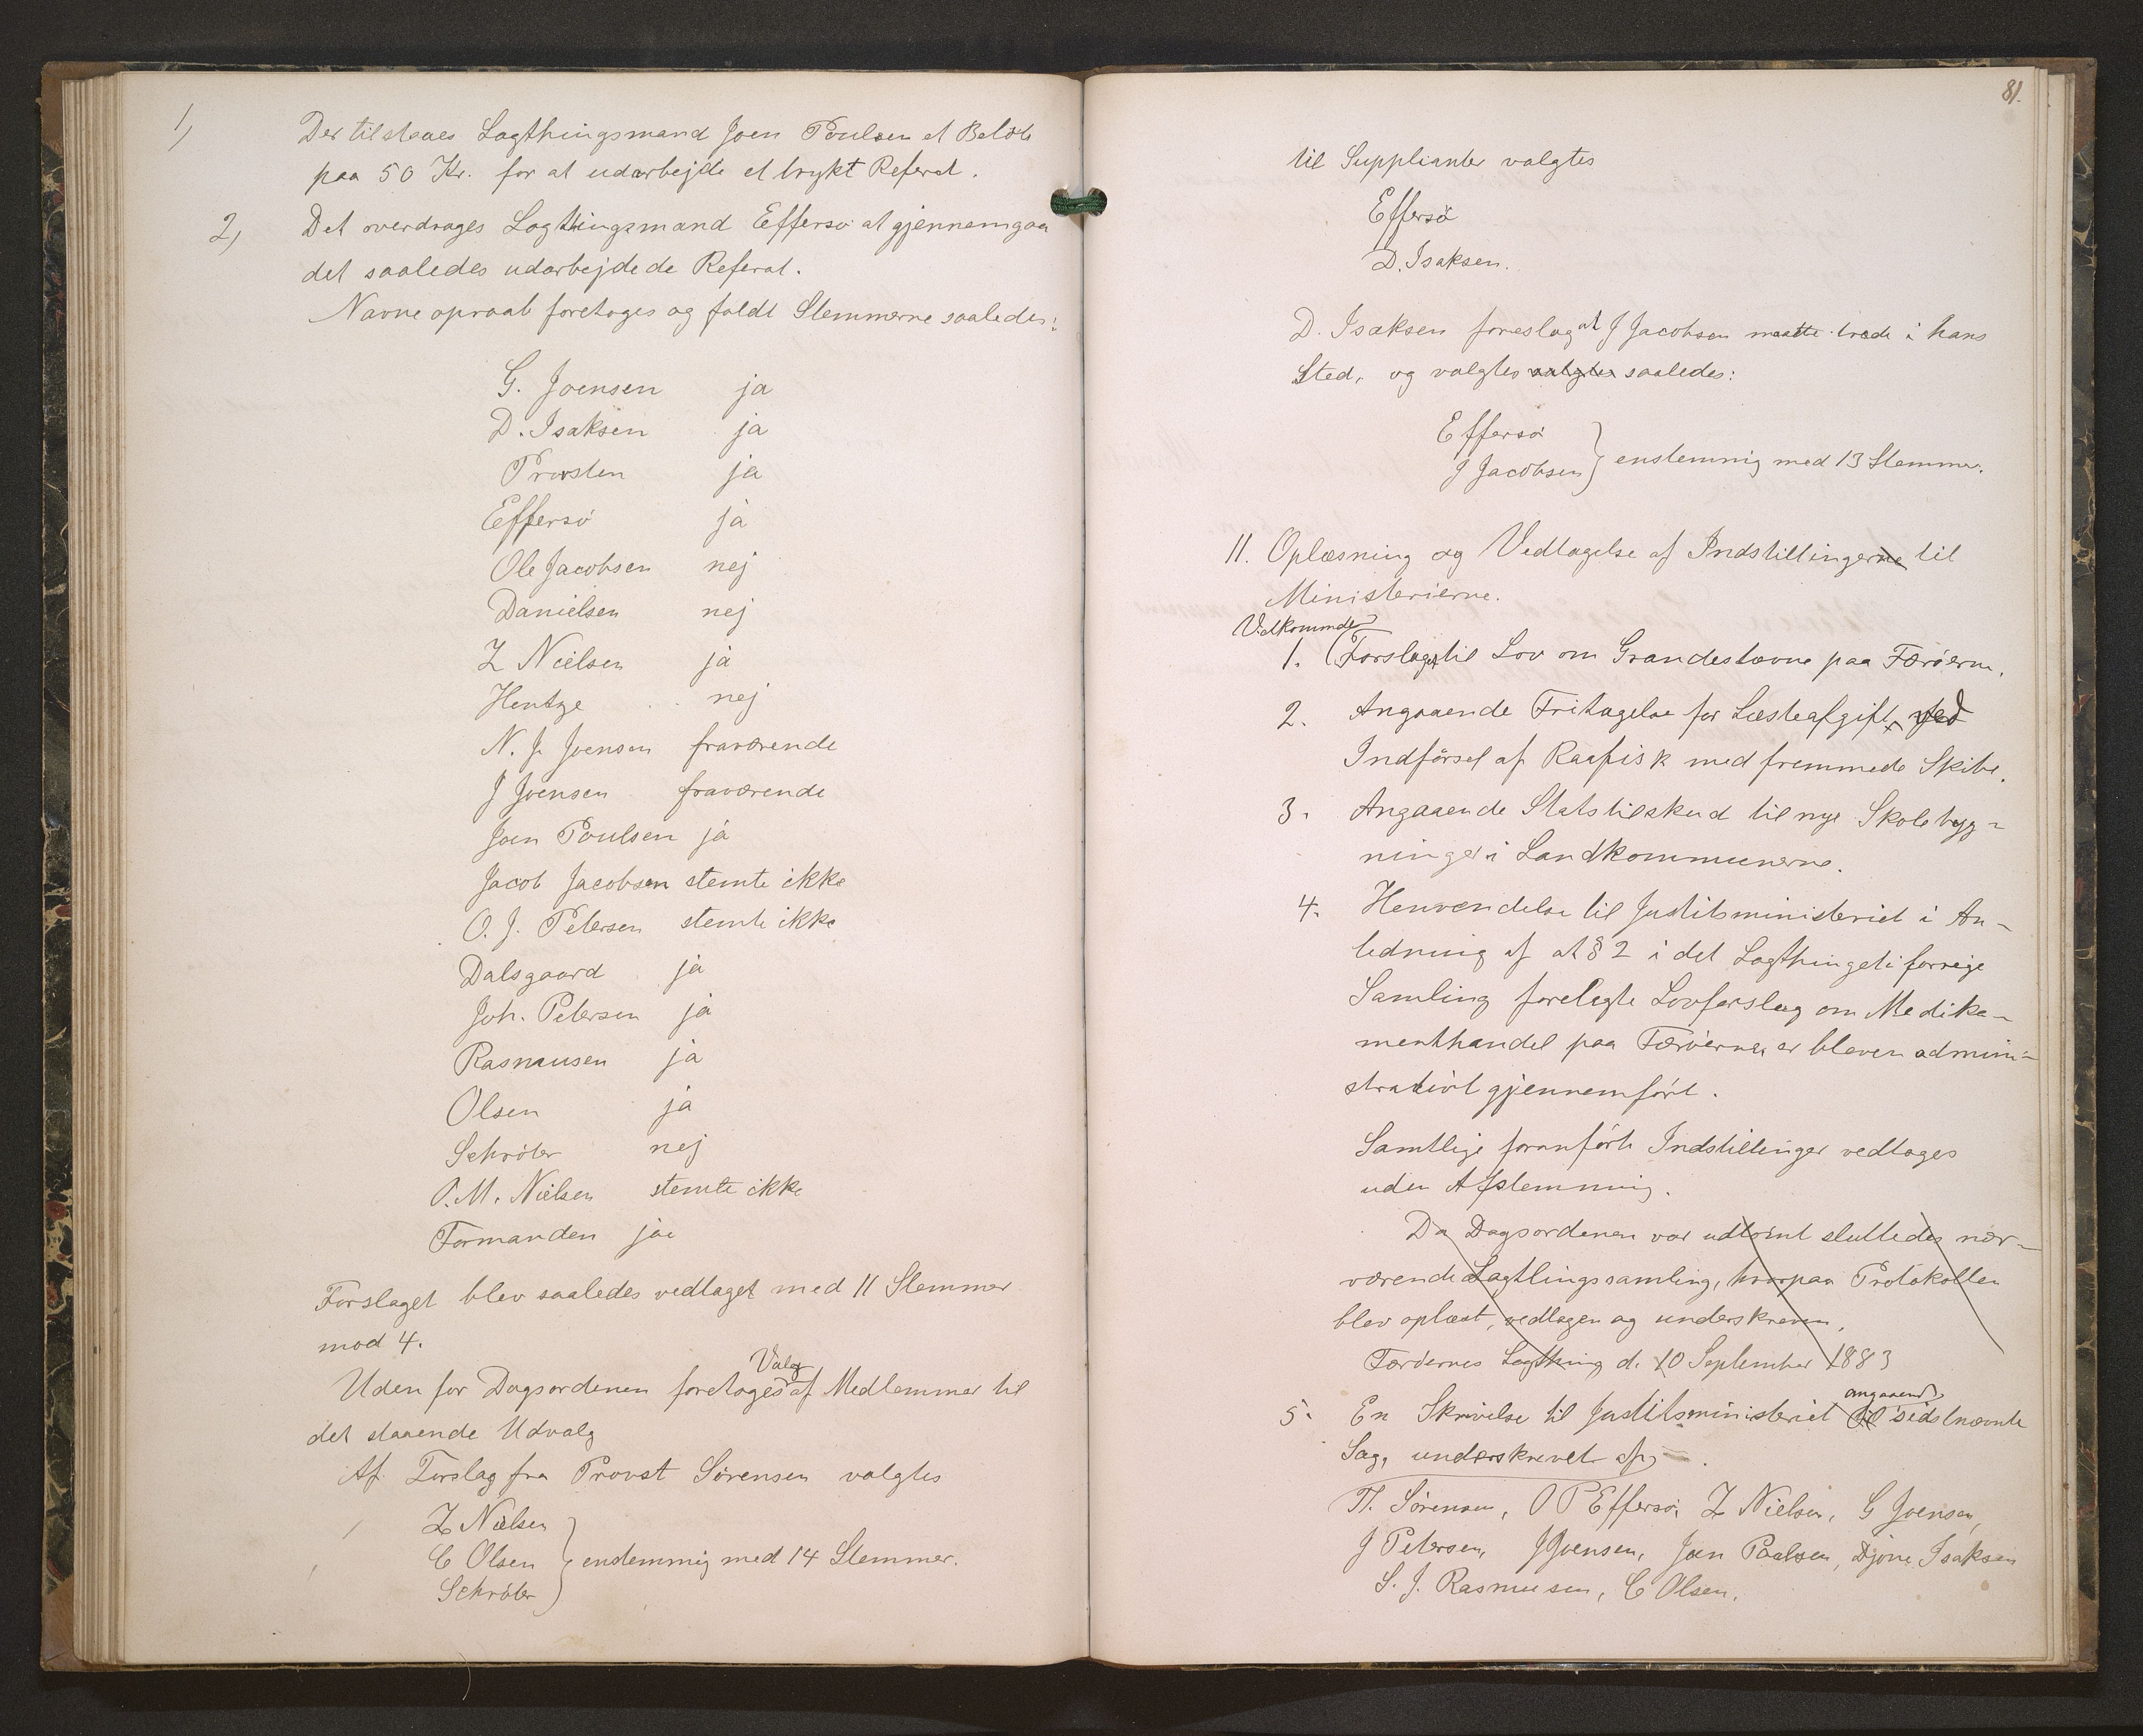 1,
Der tilstaaes Lagthingsmand Joen Poulsen et Beløb
paa 50 Kr. for at udarbejde et trykt Referat.
2,
Det overdrages Lagthingsmand Effersö at gjennemgaa
det saaledes udarbejdede Referat.
Navneopraab foretoges og faldt Stemmerne saaledes:
G. Joensen ja
D. Isaksen ja
Provsten ja
Effersö ja
Ole Jacobsen nej
Danielsen nej
Z Nielsen ja
Hentze nej
N. J. Joensen fraværende
J Joensen fraværende
Joen Poulsen ja
Jacob Jacobsen stemte ikke
O. J. Petersen stemte ikke
Dalsgaard ja
Joh. Petersen ja
Rasmusen ja
Olsen ja
Schröter nej
O. M. Nielsen stemte ikke
Formanden ja
Forslaget blev saaledes vedtaget med 11 Stemmer
mod 4.
Uden for Dagsordenen foretoges Valg af Medlemmer til
det staaende Udvalg
Af Forslag fra Provst Sörensen valgtes
Z Nielsen
C Olsen } enstemmig med 14 Stemmer.
Schröter
81.
til Supplianter valgtes
Effersö
D. Isaksen.
D. Isaksen foreslog at J Jacobsen maatte træde i hans
Sted, og valgtes valgtes saaledes:
Effersö
J Jacobsen } enstemmig med 13 Stemmer.
11. Oplæsning og Vedtagelse af Indstillingerne til
Ministerierne.
Vedkommde
1. Forslaget til Lov om Grandestævne paa Færöerne.
2. Angaaende Fritagelse for Læsteafgift, ved
Indförsel af Raafisk med fremmede Skibe.
3. Angaaende Statstilskud til nye Skolebyg-
ninger i Landkommunerne.
4. Henvendelse til Justitsministeriet i An-
ledning af at § 2 i det Lagthinget i forrige
Samling forelagte Lovforslag om Medika-
menthandel paa Færöerne, er bleven admini-
strativt gjennemfört.
Samtlige foranförte Indstillinger vedtoges
uden Afstemning.
Da Dagsordenen var udtömt sluttedes nær-
værende Lagtingssamling, hvorpaa Protokollen
blev oplæst, vedtagen og underskreven.
Færöernes Lagthing d. 10 September 1883
5. En Skrivelse til Justitsministeriet til angaaende sidstnævnte
Sag, underskrevet af
Th. Sörensen, O P Effersö, Z Nielsen, G Joensen,
J Petersen, J Joensen, Joen Poulsen, Djone Isaksen
S. J. Rasmusen, C Olsen.